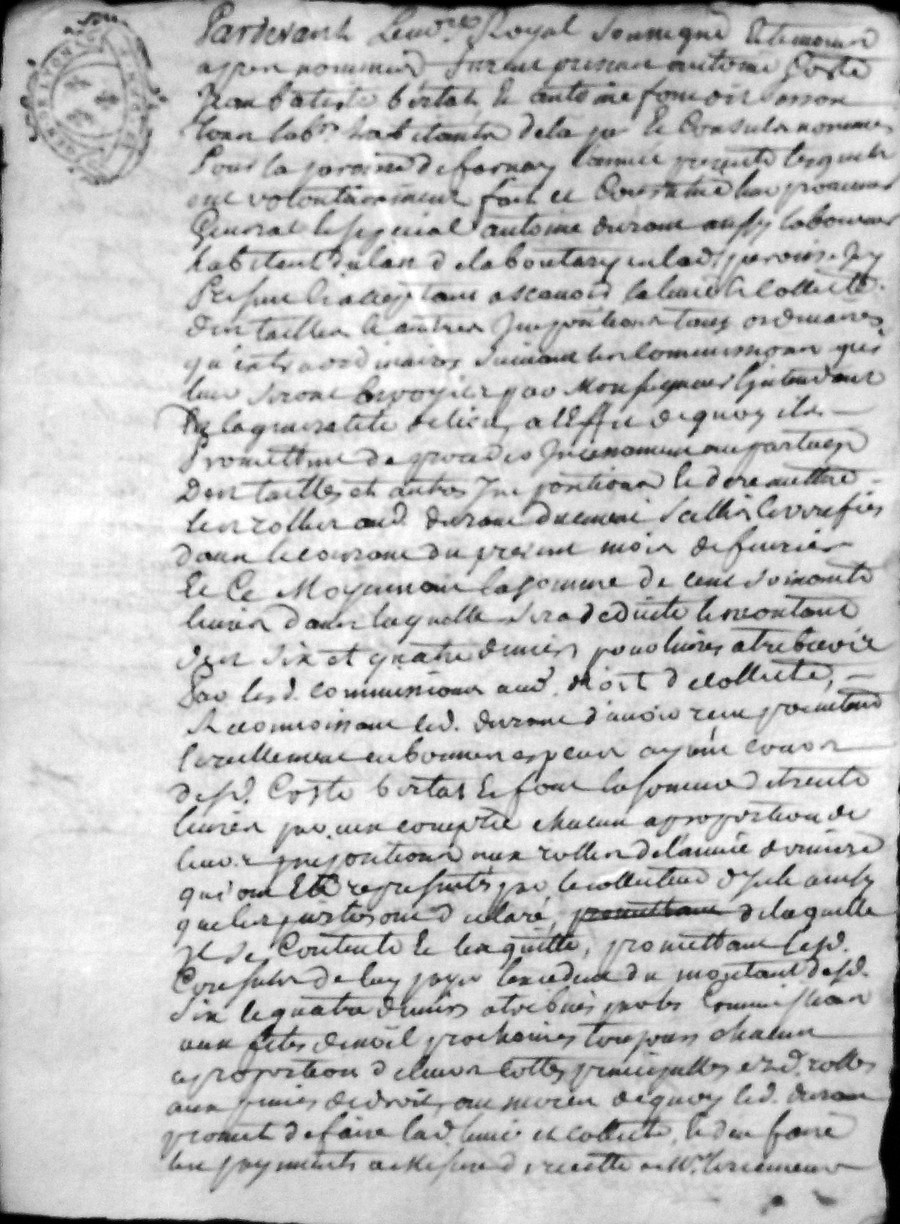 Pardevant Le no.re Royal Soussigné Et temoins
apres nommes furent presens antoine Coste
Jean batiste bertat Et antoine
tous lab.rs habitants de la p.sse Et Consuls nommes
Pour la paroisse de farnay l'année presente lesquels
ont volontairement fait et Constitué leur procureur
General Et special antoine durant aussy laboureur
habitant du lieu de la boutary en lad. paroisse Icy
Present Et acceptant a scavoir la levée Et Collecte
Des tailles Et autres Impositions tant ordinaires
qu'extraordinaires suivant les Commissions qui
leur seront Envoyées par Monseigneur l'Intendant
En la generalité de lion, a l'Effet de quoy ils
Promettent de proceder Incessamment au partage
Des tailles et autres Impositions Et de remettre
les rolles aud. durant duement scellés Et verifiés
dans le courant du present mois de fevrier
Et Ce Moyennant la somme de cent soixante
livres dans laquelle sera deduitte le montant
des six et quatre deniers pour livres atribués
Par lesd. commissions aud. droit de collecte,
Reconnoissant led. durant d'avoir reçu presentement
Et reellement en bonnes especes ayant cours
desd. Coste bertat Et la somme de trente
livres par un compte chacun a proportion de
leurs Impositions aux rolles de l'année derniere
qui ont Eté representés par le collecteur d'Icelle aussy
que les parties ont declaré, promettant de laquelle
Il se Contente Et les quitte, promettant lesd.
Consuls de luy payer l'excedent du montant desd.
Six Et quatre deniers atribués par les Commissions
aux fetes de noel prochaines toujours chacun
a proportion de leurs Cottes principalles esd. rolles
aux peines de droit, au moyen de quoy led. durant
promet de faire lad. levée et collecte, Et d'en faire
les payments a Mesure de recette a M.rs les receveurs